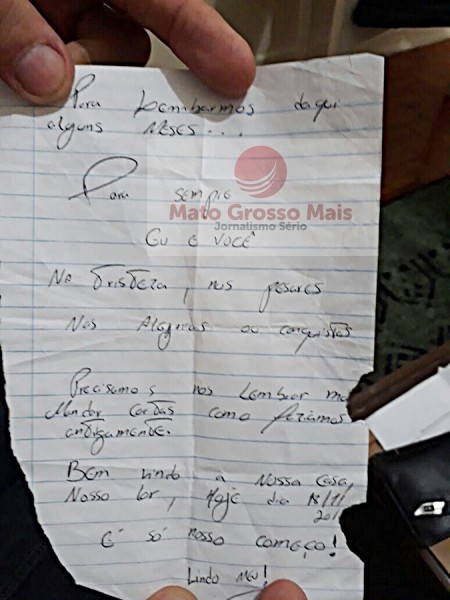 Para Lembrarmos daqui
alguns Meses...
Para sempre
Mato Grosso Mais
Jornalismo Sério
EU E VOCÊ
Na tristeza, nos pesares
Nas Alegrias ou conquistas
Precisamos nos Lembrar
Mandar Cartas como fazíamos
antigamente.
Bem vindo a Nossa Casa,
Nosso lar, Hoje dia
É só nosso começo!
Lindo Meu!